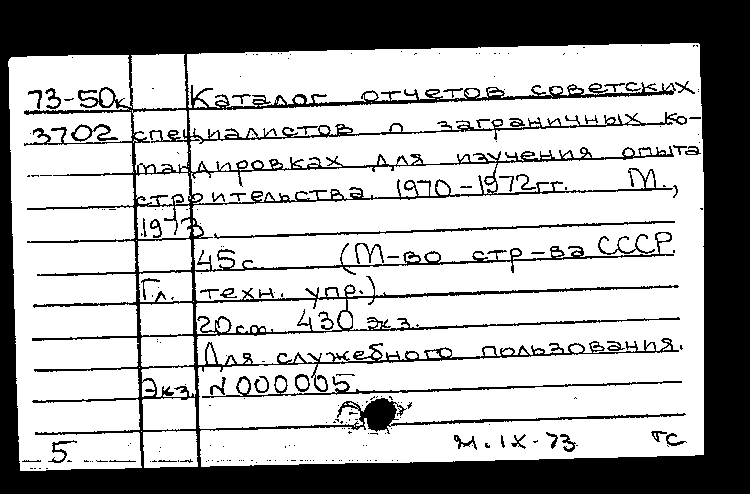 73-50к Каталог отчетов советских
3702 специалистов о заграничных ко-
мандировках для изучения опыта
строительства. 1970-1972гг. М.,
1973.
45с. (М-во стр-ва СССР.
Гл. техн. упр.).
20см. 430 экз.
Для служебного пользования.
Экз. N 000005.
5 М.IX-73 ГС